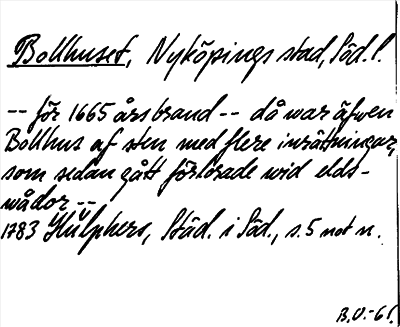 Bollhuset, Nyköpings stad, Söd. l.
-- för 1665 års brand -- då war äfwen
Bollhus af sten med flere inrättningar,
som sedan gått förlorade wid elds-
wådor --
1783 Hülphers, Städ. i Söd., s. 5 not n.
B.U.-61.